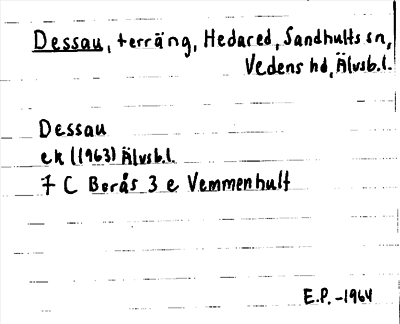 Dessau, terräng, Hedared, Sandhults sn,
Vedens hd, Älvsb.l.
Dessau
ek (1963) Älvsb.l.
7 C Borås 3 e Vemmenhult
E.P. -1964